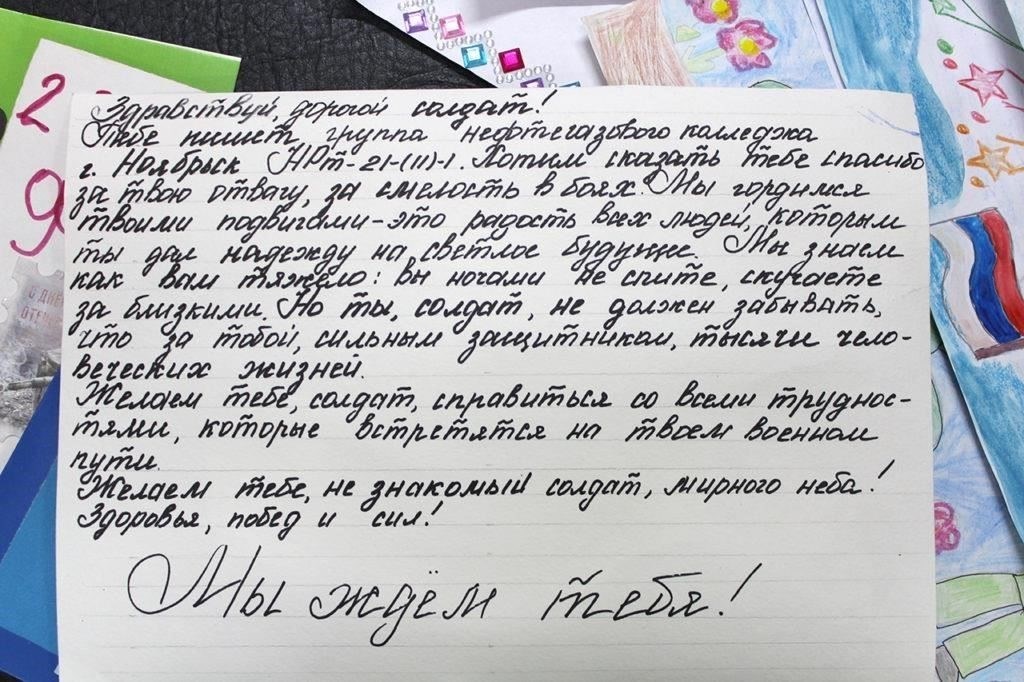 Здравствуй, дорогой солдат!
Тебе пишет группа нефтегазового колледжа
г. Ноябрьск НРт-21-(11)-1. Хотим сказать тебе спасибо
за твою отвагу, за смелость в боях. Мы гордимся
твоими подвигами-это радость всех людей, которым
ты дал надежду на светлое будущее. Мы знаем
как вам тяжело: вы ночами не спите, скучаете
за близкими. Но ты, солдат, не должен забывать,
что за тобой, сильным защитником, тысячи чело-
веческих жизней.
Желаем тебе, солдат, справиться со всеми труднос-
тями, которые встретятся на твоем военном
пути.
Желаем тебе, не знакомый солдат, мирного неба!
Здоровья, побед и сил!
Мы ждём тебя!
2
9